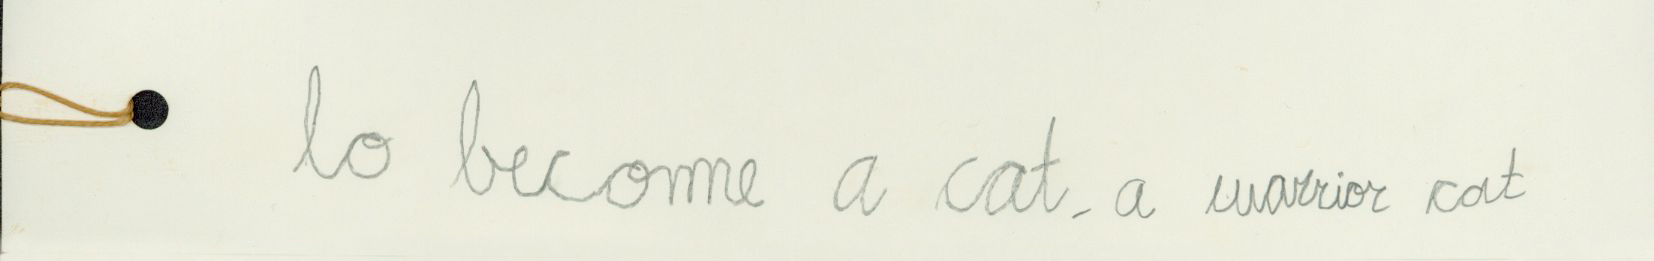 to become a cat - a warrior cat